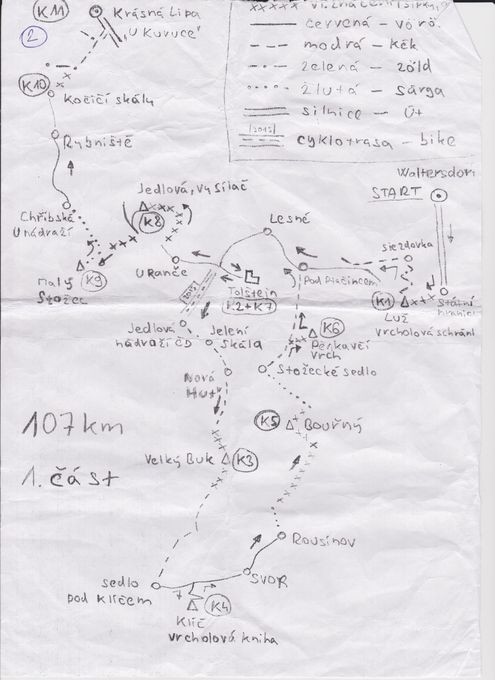 K11
Krásná Lípa
"U Kuvuce"
2
červená – vörö.
modrá – kék
zelená – zöld
žlutá – sárga
silnice – út
cyklotrasa – bike
K10
Kočičí skály
Rybniště
Waltersdorf
START
Jedlová, vysílač
K8
Lesné
Chřibská
u nádraží
U Ranče
K9
Malý
Stožec
Tolštejn
K2+K7
Pod Ptačincem
sjezdovka
K1
LUŽ
vrcholová schrán
Státní
hranice
Jedlová
nádraží ČD
Jelení
skála
K6
Pěnkavčí
vrch
Nová
Huť
Stožecké sedlo
107km
K5
Bouřný
1. část
Velký Buk
K3
Rousínov
sedlo
pod Klíčem
SVOR
K4
Klíč
vrcholová kniha